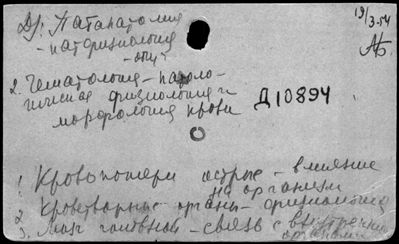 19/3-54
Др. Патанатомия
- патфизиология
2. Гематология - патоло-
гическая физиология и
морфология крови
Д10894
1. Кровопотери острые - влияние
на организм
2. Кроветворные органы - физиология
3. Мозг головной - связь с внутренни
органами